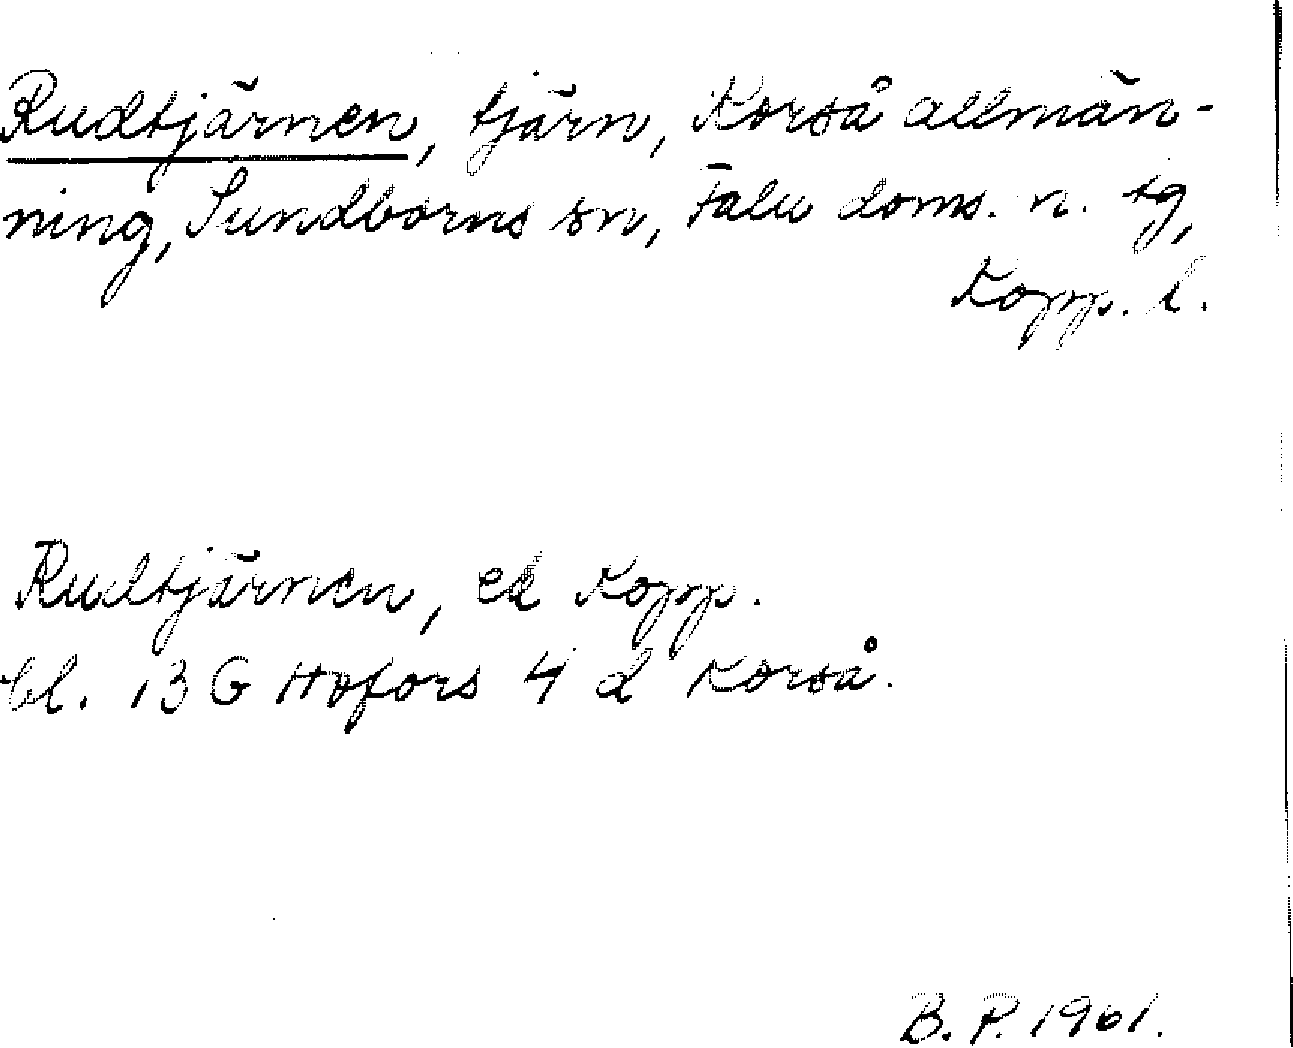 Rudtjärnen, tjärn, Korså allmän-
ning, Sundborns sn, Falu doms. n. tg,
Kopp. l.
Rudtjärnen, ek Kopp.
bl. 13 G Hofors 4 d Korså.
B. P. 1961.